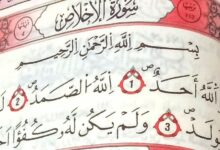 سُورَةُ الْإِخْلَاصِ
بِسْمِ اللَّهِ الرَّحْمَٰنِ الرَّحِيمِ
اللَّهُ أَحَدٌ ١ اللَّهُ الصَّمَدُ ٢
٣ وَلَمْ يَكُن لَّهُ كُفُوًا